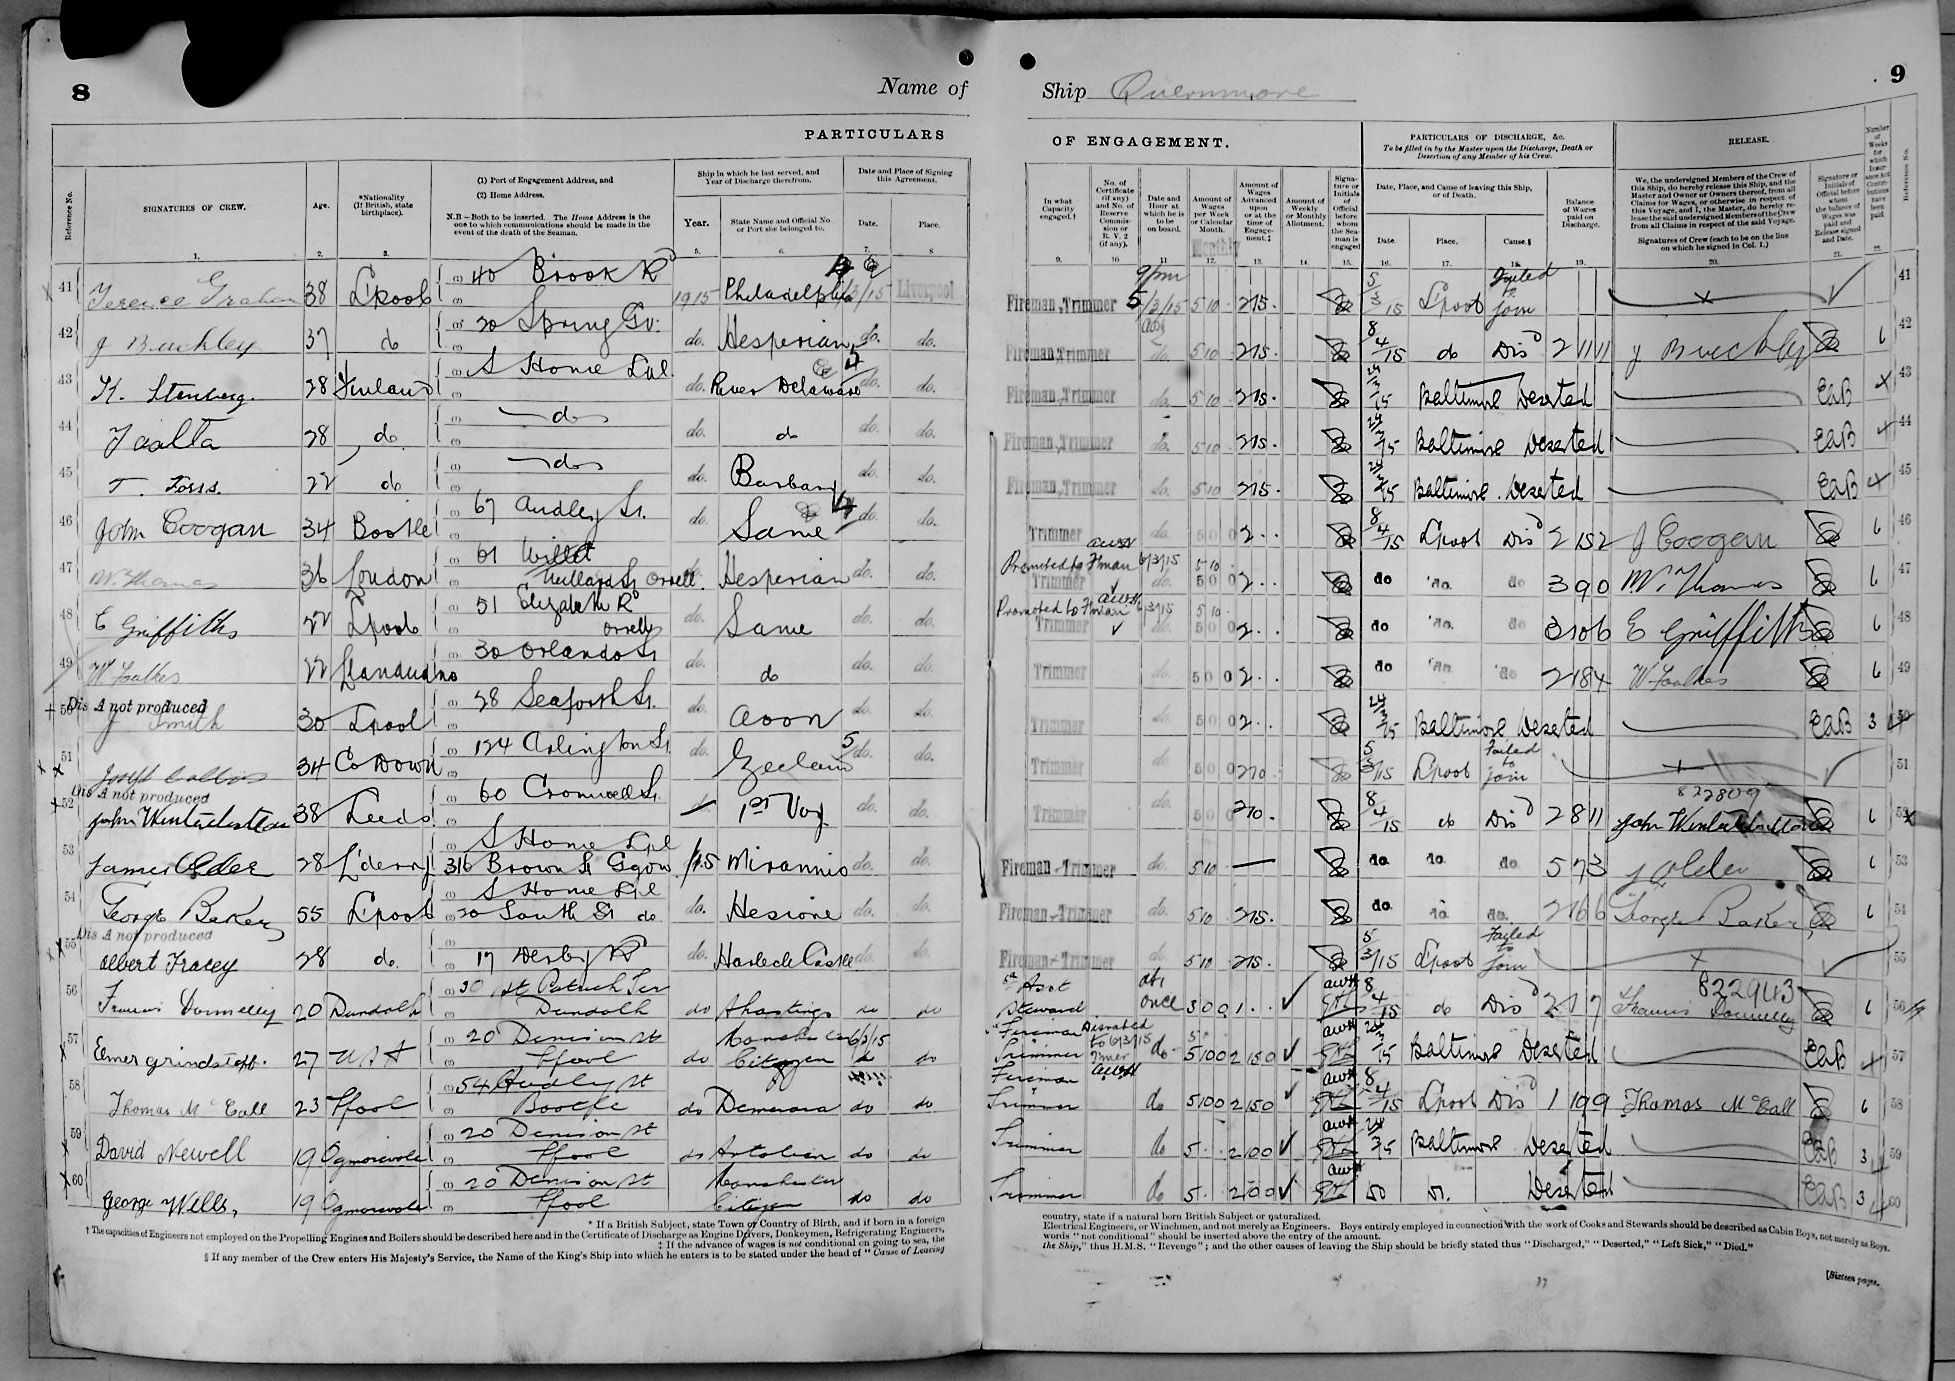 8
Name of
PARTICULARS
Reference No.
SIGNATURES OF CREW.
Age.
*Nationality (If British, state birthplace).
(1) Port of Engagement Address, and
(2) Home Address,
N.B—Both to be inserted. The Home Address is the one to which communications should be made in the event of the death of the Seaman.
Ship in which he last served, and Year of Discharge therefrom.
Year.
State Name and Official No. or Port she belonged to.
Date and Place of Signing this Agreement.
Date.
Place.
1. 2. 3. 5. 6. 7. 8
41 Terence Graham 38 L'pool 40 Brook Rd 1915 Philadelphia /3/15 Liverpool
42 J Buckley 37 do 20 Spring Gv: do. Hesperian do. do.
43 K. Stenberg. 28 Finland S Home Lpl do. River Delaware do. do.
44 28 do do do. do do. do.
45 T. Forss. 22 do do do. Barbary do. do.
46 John Coogan 34 Bootle 67 Audley St. do. Same do. do.
47 W. Thomas 36 London 61 Orrell do. Hesperian do. do.
48 E Griffiths 22 L'pool 51 Elizabeth Rd Orrell do. Same do. do.
49 W Foulkes 22 Llandudno 30 Orlando St do. do do. do.
Dis A not produced
50 J Smith 30 L'pool 28 Seaforth St. do. Avon do. do.
51 Joseph 34 Co Down 124 Arlington St. do. do. do.
Dis A not produced
52 John 38 Leeds 60 Cromwell St. — 1st Voy do. do.
53 James Older 28 L'derry S Home Lpl
316 Brown St Ggow 1915 do. do.
54 George Baker 55 L'pool S Home Lpl
20 South St do do. Hesione do. do.
Dis A not produced
55 Albert Tracey 28 do. 17 Derby Rd do. Harlech Castle do. do.
56 Francis Donnelly 20 Dundalk 30 St Patrick Ter
Dundalk do Hastings do do
57 Elmer 27 USA 20 Denison St
L'pool do Manchester Citizen 6/3/15 do do
58 Thomas McCall 23 L'pool 54 Audley St
Bootle do Demerara do do
59 David Newell 19 Ogmorevale 20 Denison St
L'pool do do do
60 George Wells, 19 Ogmorevale 20 Denison St
L'pool Manchester Citizen do do
* If a British Subject, state Town or Country of Birth, and if born in a foreign
† The capacities of Engineers not employed on the Propelling Engines and Boilers should be described here and in the Certificate of Discharge as Engine Drivers, Donkeymen, Refrigerating Engineers,
‡ If the advance of wages is not conditional on going to sea, the
§ If any member of the Crew enters His Majesty's Service, the Name of the King's Ship into which he enters is to be stated under the head of "Cause of Leaving
9
Ship Quernmore
OF ENGAGEMENT.
PARTICULARS OF DISCHARGE, &c.
To be filled in by the Master upon the Discharge, Death or Desertion of any Member of his Crew.
RELEASE.
In what Capacity engaged.†
No. of Certificate (if any) and No. of Reserve Commission or R.V.2 (if any).
Date and Hour at which he is to be on board.
Amount of Wages per Week or Calendar Month.
Monthly
Amount of Wages Advanced upon or at the time of Engagement.‡
Amount of Weekly or Monthly Allotment.
Signature or Initials of Official before whom the Seaman is engaged
Date, Place, and Cause of leaving this Ship, or of Death.
Date.
Place.
Cause.§
Balance of Wages paid on Discharge.
We, the undersigned Members of the Crew of this Ship, do hereby release this Ship, and the Master and Owner or Owners thereof, from all Claims for Wages, or otherwise in respect of this Voyage, and I, the Master, do hereby release the said undersigned Members of the Crew from all Claims in respect of the said Voyage.
Signatures of Crew (each to be on the line on which he signed in Col. 1.)
Signature or Initials of Official before whom the balance of Wages was paid and Release signed and Date.
Reference No.
9. 10 11 12. 13. 14. 15. 16. 17. 18. 19. 20. 21.
Fireman-Trimmer 9pm 5/3/15 5 10 2 15. 5/3/15 L'pool Failed to join 41
Fireman-Trimmer do. 5 10 2 15. 8/4/15 do Disd 2 11 11 J Buckley 6 42
Fireman-Trimmer do. 5 10 2 15. Baltimore Deserted EaB 43
Fireman-Trimmer do. 5 10 2 15. Baltimore Deserted EaB 44
Fireman-Trimmer do. 5 10 2 15. Baltimore Deserted EaB 45
Trimmer do. 5 0 0 2. 8/4/15 L'pool Disd 2 15 2 J Coogan 6 46
Promoted to Fman 6/3/15 5 10
Trimmer do. 5 0 0 2. do do. do 3 9 0 W. Thomas 6 47
Promoted to Fman 6/3/15 5 10
Trimmer do. 5 0 0 2. do do. do 3 10 6 E Griffiths 6 48
Trimmer do. 5 0 0 2. do do. do 2 18 4 W Foulkes 6 49
Trimmer do. 5 0 0 2. Baltimore Deserted EaB 3 50
Trimmer do. 5 0 0 2 10 5/3/15 L'pool Failed to join 51
822809
Trimmer do. 5 0 0 2 10. 8/4/15 do Disd 2 8 11 John 6 52
Fireman-Trimmer do. 5 10 — do. do. do. 5 7 3 J Older 6 53
Fireman-Trimmer do. 5 10 2 15. do. do. do. 2 16 6 George Baker 6 54
Fireman-Trimmer do. 5 10 2 15. 5/3/15 L'pool Failed to join 55
822943
Asst Steward at once 3 0 0 1. 8/4/15 do Disd Francis Donnelly 6 56
Fireman Trimmer Disrated to Tmer 6/3/15 do 5 10 0 2 15 0 Baltimore Deserted EaB 57
Fireman Trimmer do 5 10 0 2 15 0 8/4/15 L'pool Disd 1 19 9 Thomas McCall 6 58
Trimmer do 5. 2 0 0 Baltimore Deserted EaB 3 59
Trimmer do 5. 2 0 0 Deserted EaB 3 60
country, state if a natural born British Subject or naturalized.
Electrical Engineers, or Winchmen, and not merely as Engineers. Boys entirely employed in connection with the work of Cooks and Stewards should be described as Cabin Boys, not merely as Boys.
words "not conditional" should be inserted above the entry of the amount.
the Ship," thus H.M.S. "Revenge"; and the other causes of leaving the Ship should be briefly stated thus "Discharged," "Deserted," "Left Sick," "Died."
[Sixteen pages.